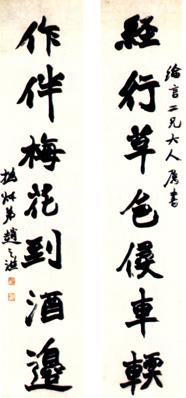 綸言二兄大人屬書
經行草色車輭
作伴梅花到酒邊
撝叔弟趙之謙